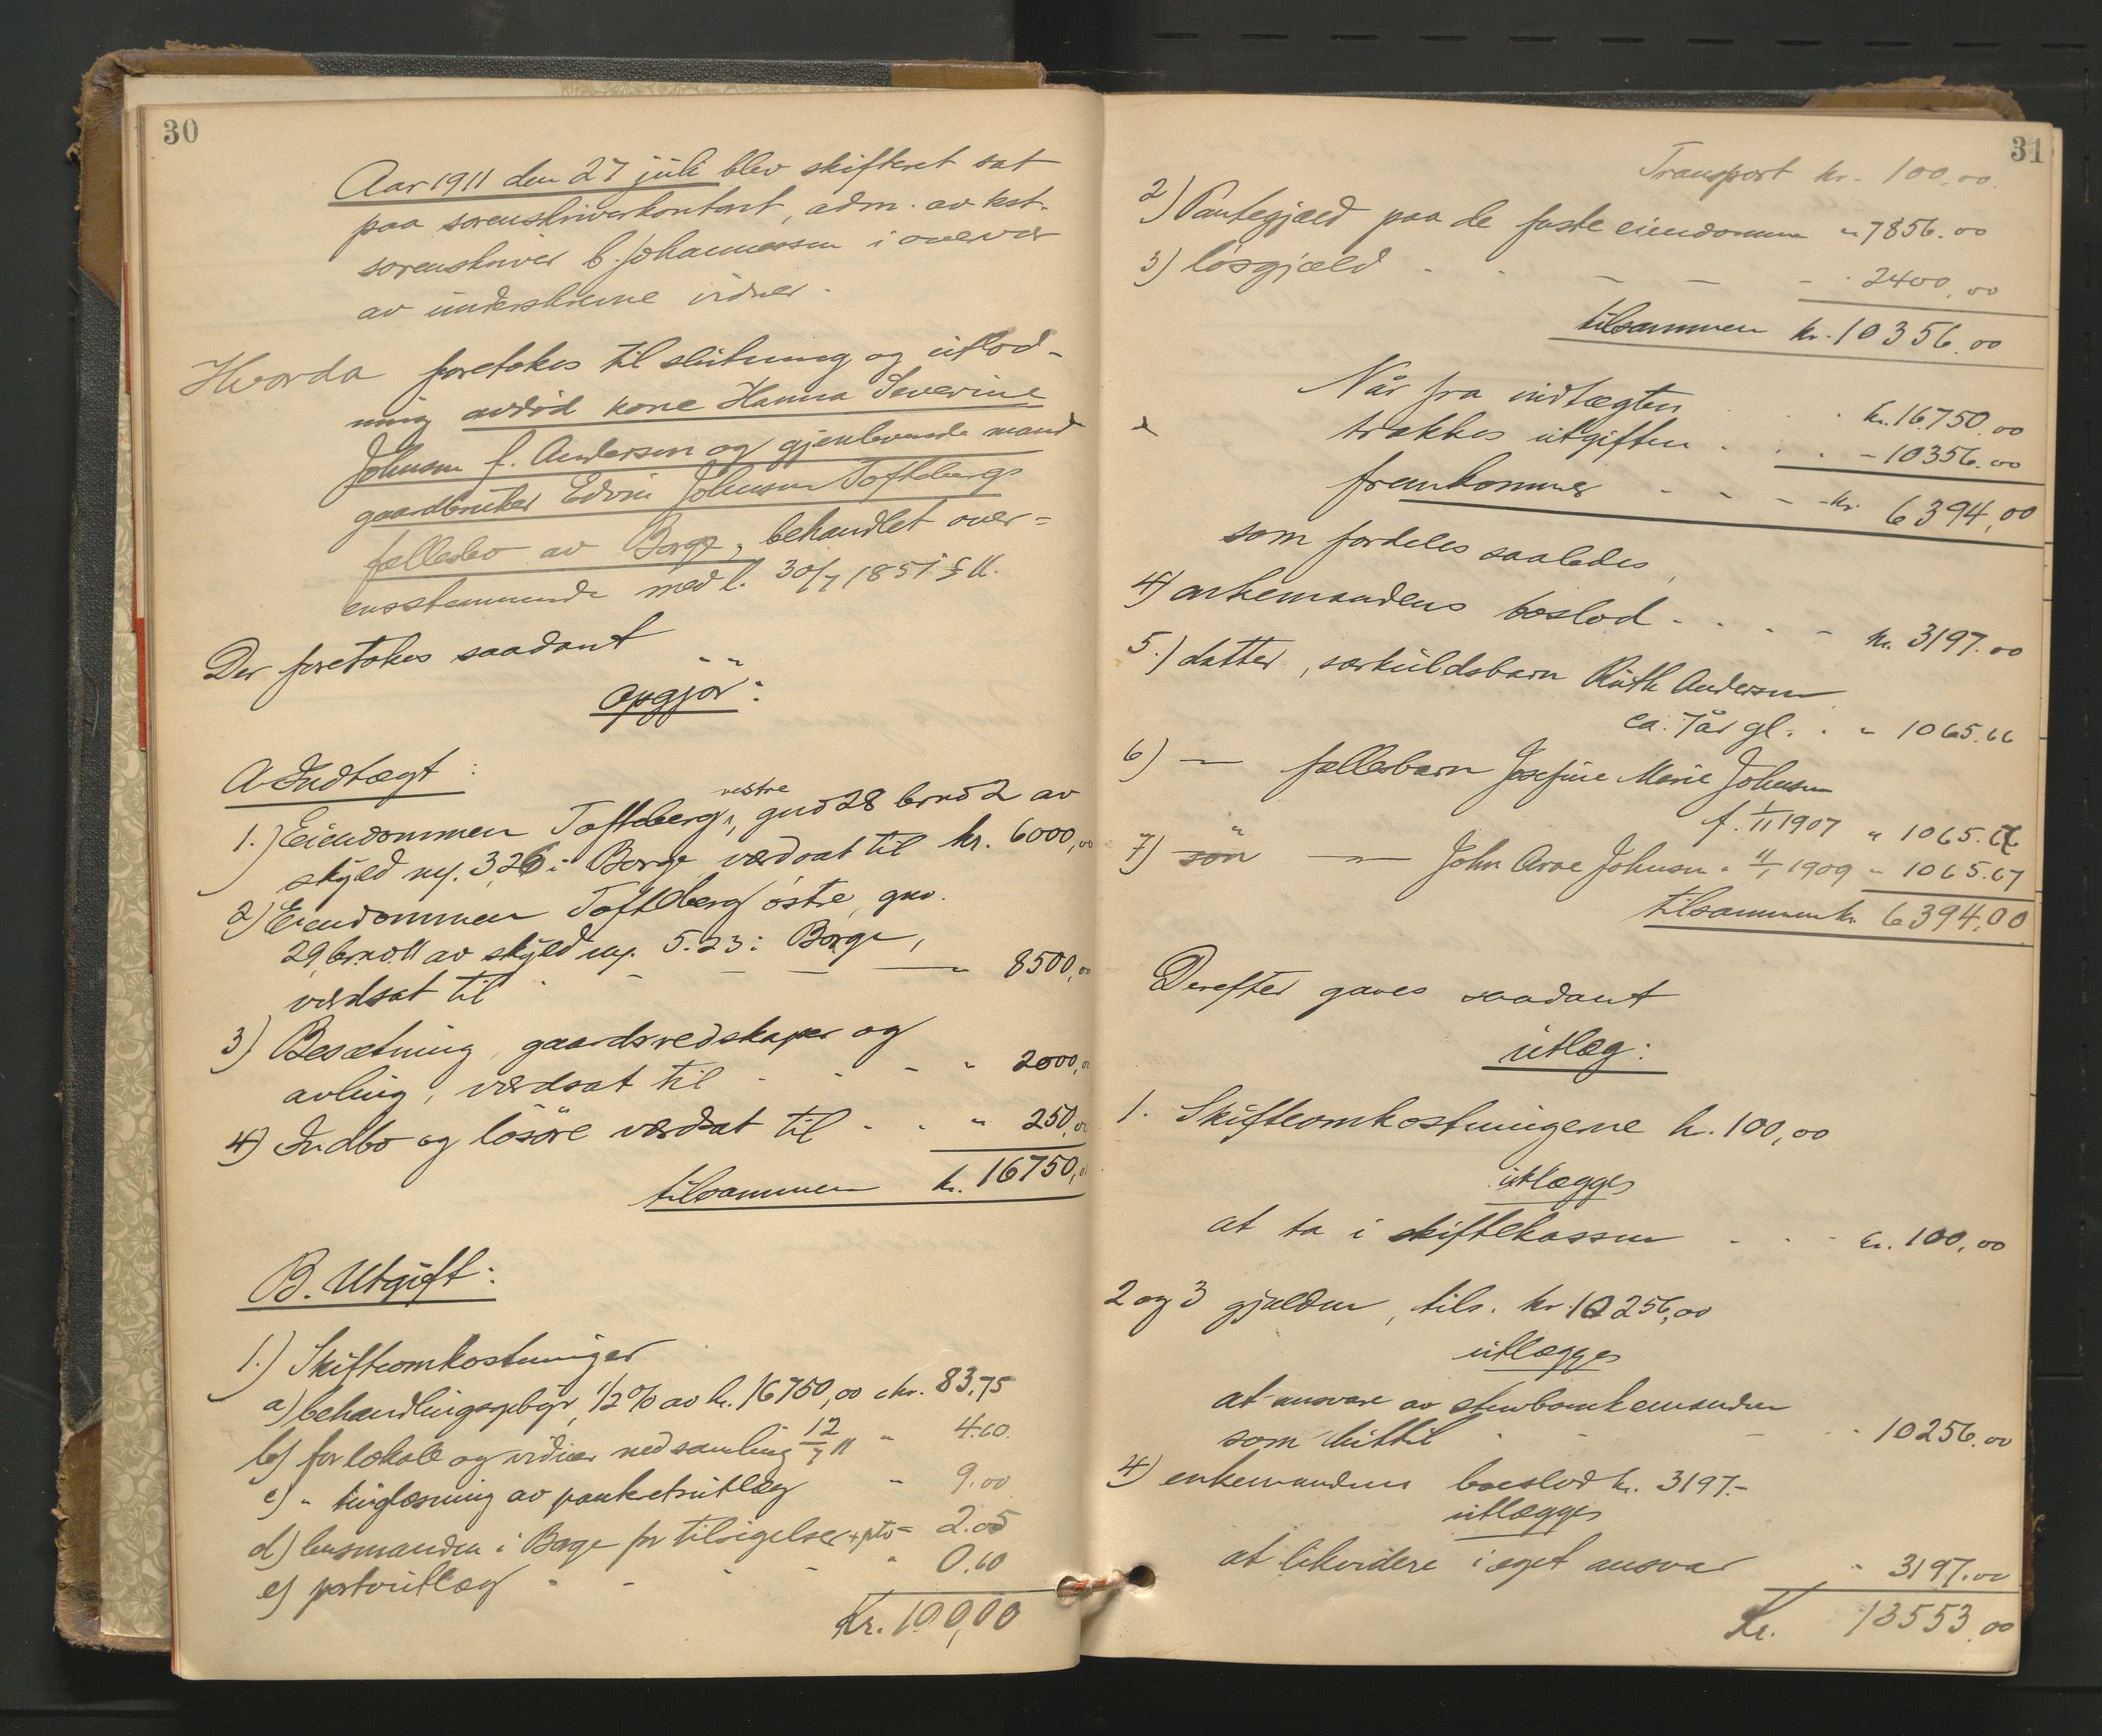 30
Aar 1911 den 27 juli blev skifteret sat
paa sorenskriverkontoret, adm. av kst.
sorenskriver C. Johannessen i overvær
av underskrevne vidner.
Hvorda foretokes til slutning og utlod-
ning avdöd kone Hanna Severine
Johnsen f. Andersen og gjenlevende mand
gaardbruker Edvin Johnsen Toftebergs
fællesbo av Borge, behandlet over=
ensstemmende med l. 30/7 1851 § 11.
Der foretokes saadant
opgjör:
A. Indtægt:
1.) Eiendommen Tofteberg vestre, gno 28 brno 2 av
skyld my. 3,26 i Borge værdsat til kr. 6000,00
2) Eiendommen Tofteberg östre, gno.
29, brno. 11 av skyld my. 5.23 i Borge,
værdsat til - - - " 8500,00
3) Besætning, gaardsredskaper og
avling, værdsat til - - - " 2000,00
4) Indbo og lösöre værdsat til - - " 250,00
tilsammen kr. 16750,00
B. Utgift:
1.) Skifteomkostninger
a) behandlingsgebyr, 1/2 % av kr. 16750,00 kr. 83,75
b) for lokale og vidner ved samling 12/7 11 " 4.60.
c) " tinglæsning av panteretsutlæg " 9.00
d) lensmanden i Borge for tilsigelser + pto = 2.05
e) portoutlæg - - - - " 0.60
Kr. 100,00
31
Transport kr. 100,00.
2) Pantegjæld paa de faste eiendomme " 7856.00
3) lösgjæld - - - - - 2400,00
tilsammen kr. 10356.00
Når fra indtægten . . . kr. 16750.00
trækkes utgiften . . . - 10356.00
fremkommer - - - kr. 6394,00
som fordeles saaledes,
4) enkemandens boslod - . . - kr. 3197.00
5.) datter, særkuldsbarn Ruth Andersen
ca. 7 år gl. . " 1065.66
6) — fællesbarn Josefine Marie Johnsen
f. 1/11 1907 " 1065.67
7) sön — " — John Arve Johnsen " 11/1 1909 " 1065.67
tilsammen kr 6394,00
Derefter gaves saadant
utlæg:
1. Skifteomkostningerne kr. 100,00
utlægges
at ta i skiftekassen - - - kr. 100,00
2 og 3 gjælden, tils. kr. 10256,00
utlægges
at ansvare av enkemanden
som hittil - - - 10256.00
4) enkemandens boeslod kr. 3197.-
utlægges
at likvidere i eget ansvar " 3197.00
Kr. 13553.00